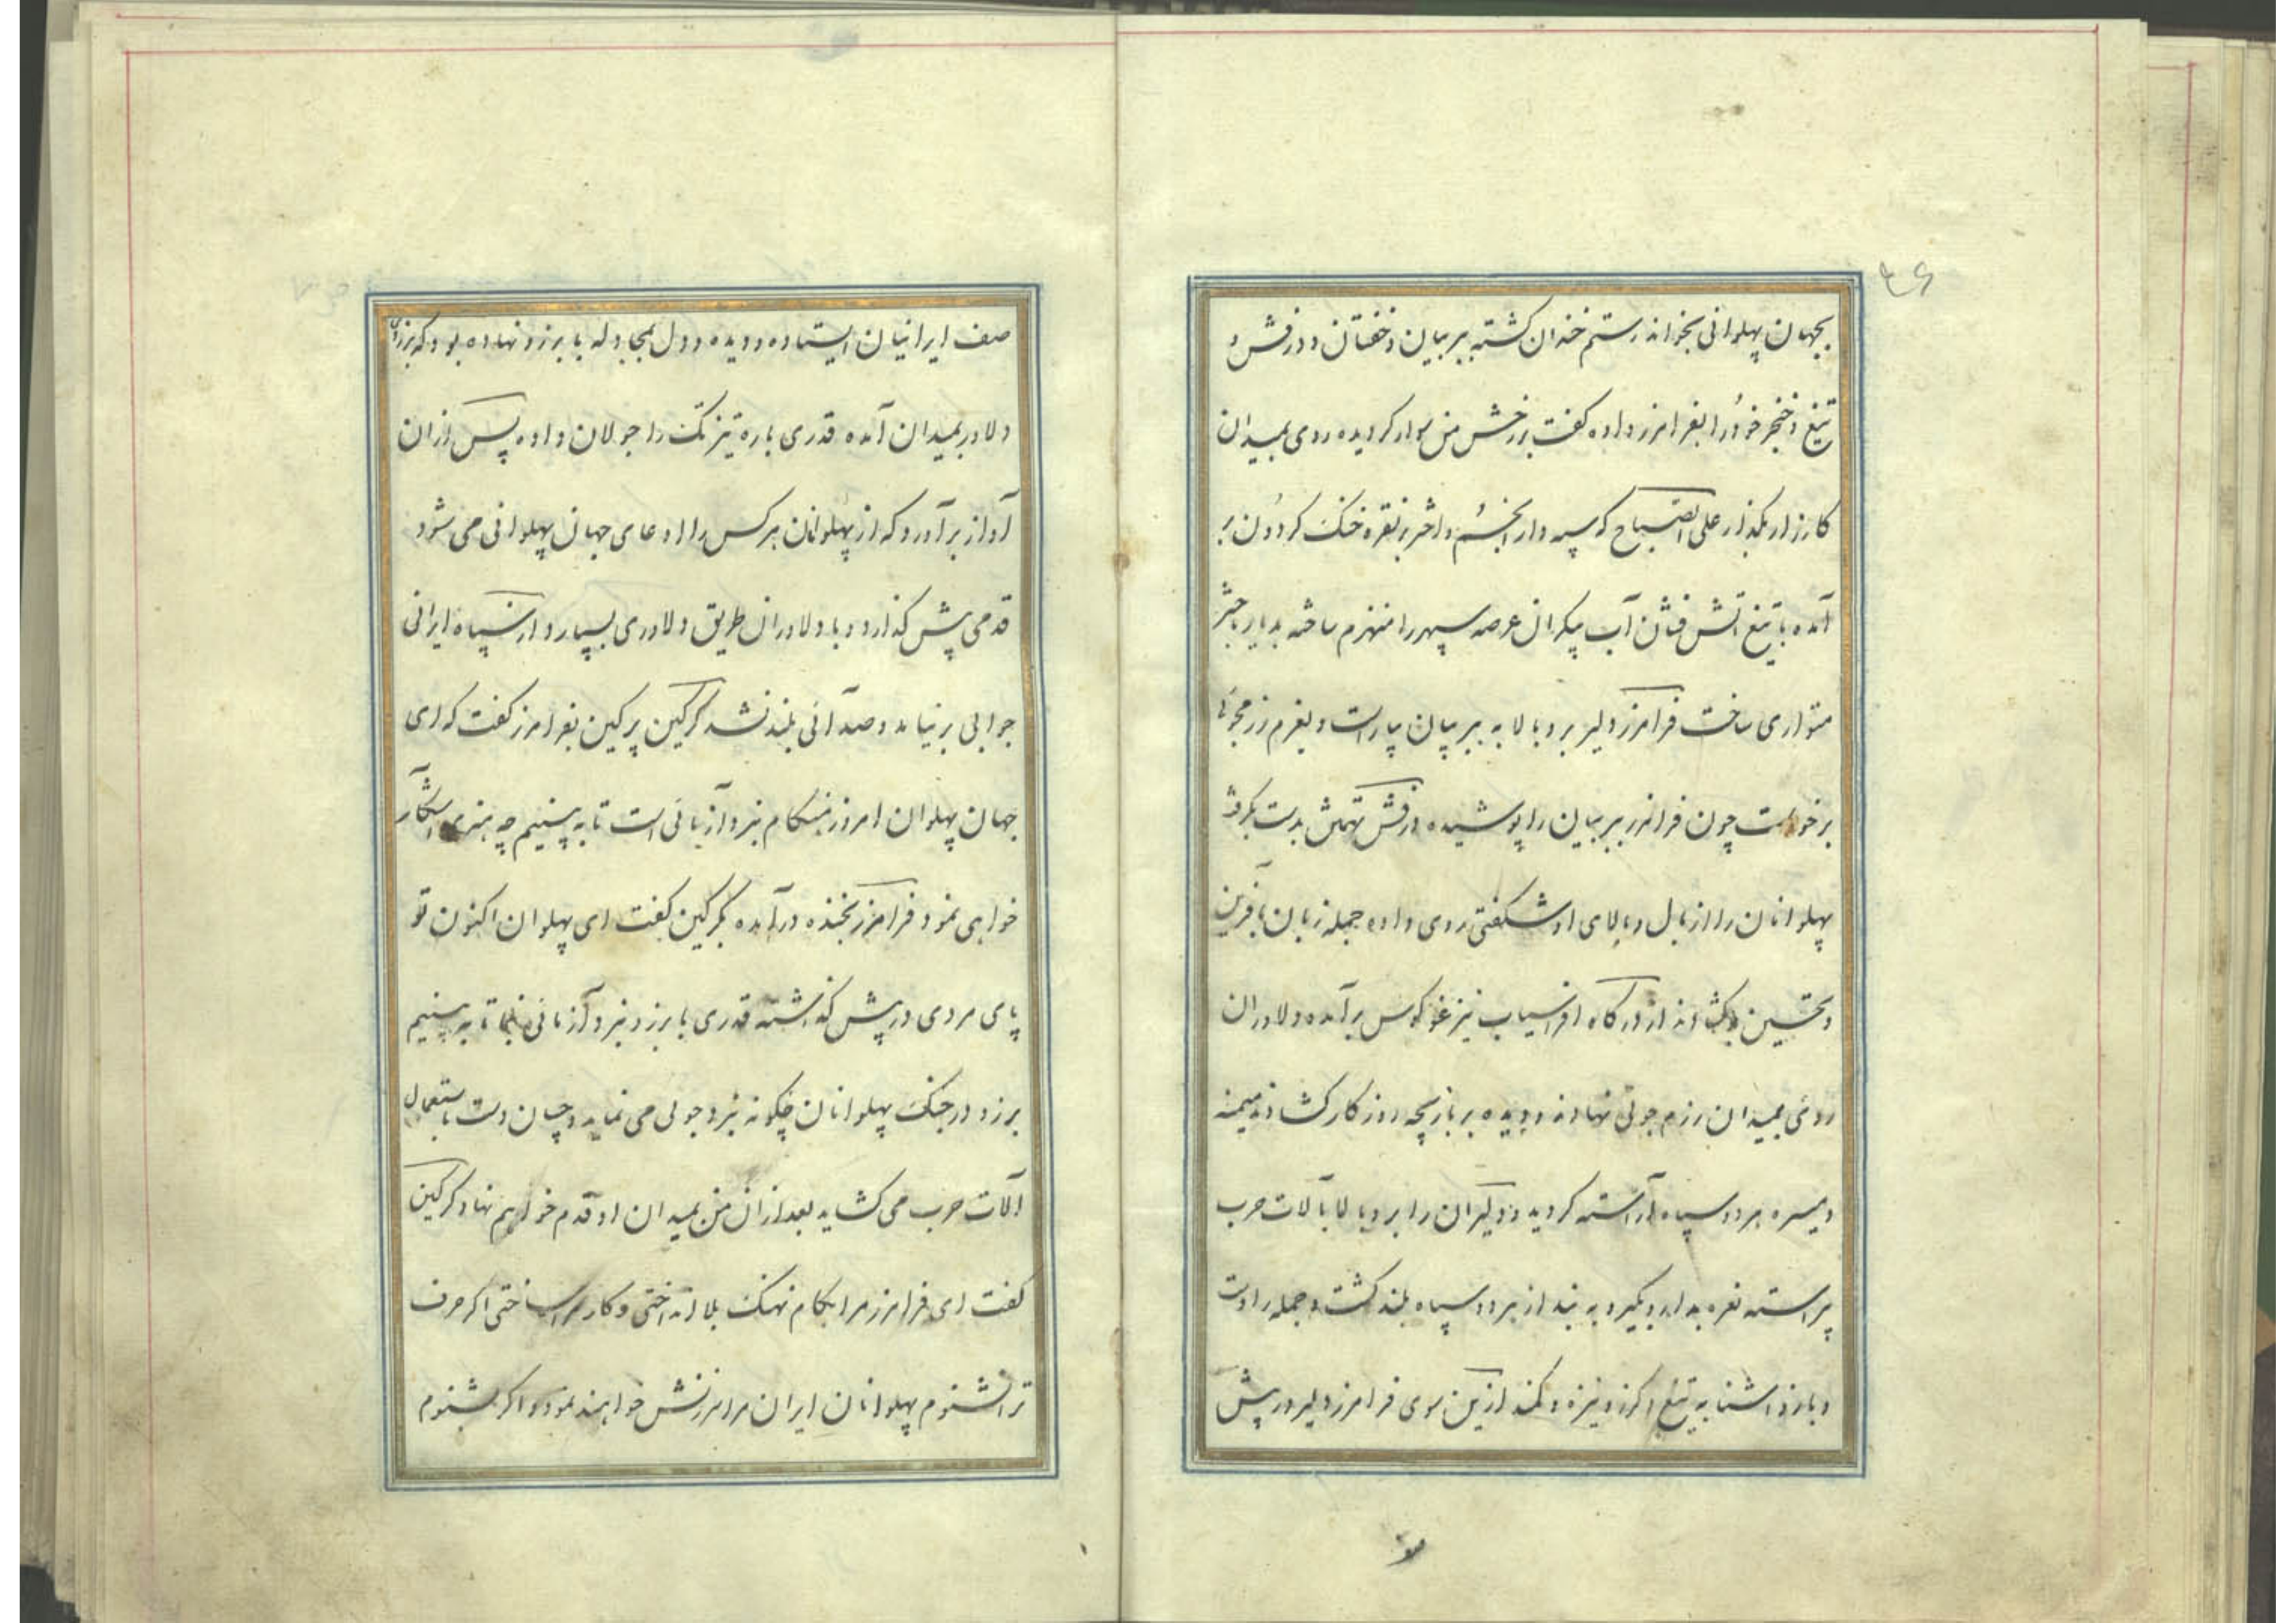 ۴۶
بجهان پهلوانی بخواند رستم خندان گشته ببر بیان و خفتان و درفش و
تیغ و خنجر خود را بفرامرز داده گفت بر رخش من سوار گردیده روی بمیدان
کارزار بگذار علی الصباح که سپه دار انجم و اختر بر نقره خنک گردون بر
آمده با تیغ آتش فشان آب پیکران عرصه سپهر را منهزم ساخته بدیار باختر
متواری ساخت فرامرز دلیر بر و بالا به ببر بیان بیاراست و بعزم رزمجوئی
برخواست چون فرامرز ببر بیان را پوشیده درفش تهمتن بدست گرفت
پهلوانان را از یال و بالای او شگفتی روی داده جمله زبان بآفرین
و تحسین بگشادند از درگاه افراسیاب نیز غو کوس برآمده دلاوران
روی بمیدان رزم جوئی نهادند و دیده بر بازیچه روزگار گشادند میمنه
و میسره هر دو سپاه آراسته گردید و دلیران را بر و بالا بآلات حرب
پیراسته نعره بدار و بگیر و به بند از هر دو سپاه بلند گشت و جمله را دست
و بازو آشنا به تیغ و گرز و نیزه و کمند ازین سوی فرامرز دلیر در پیش
صف ایرانیان ایستاده و دیده و دل بمجادله با برزو نهاده بود که برزوی
دلاور بمیدان آمده قدری باره تیز تک را جولان داده پس ازان
آواز برآورد که از پهلوانان هر کس را ادعای جهان پهلوانی می شود
قدمی پیش گذارد و با دلاوران طریق دلاوری بسپارد از سپاه ایرانی
جوابی بر نیامد و صدائی بلند نشد گرگین پر کین بفرامرز گفت که ای
جهان پهلوان امروز هنگام نبرد آزمائی است تا به بینیم چه هنری آشکار
خواهی نمود فرامرز بخنده درآمده بگرگین گفت ای پهلوان اکنون تو
پای مردی در پیش گذاشته قدری با برزو نبرد آزمائی بنما تا به بینیم
برزو در جنگ پهلوانان چگونه نبرد جوئی می نماید و چسان دست باستعمال
آلات حرب می گشاید بعد ازان من بمیدان او قدم خواهم نهاد گرگین
گفت ای فرامرز مرا بکام نهنگ بلا انداختی و کار مرا ساختی اگر حرف
ترا نشنوم پهلوانان ایران مرا سرزنش خواهند نمود و اگر بشنوم